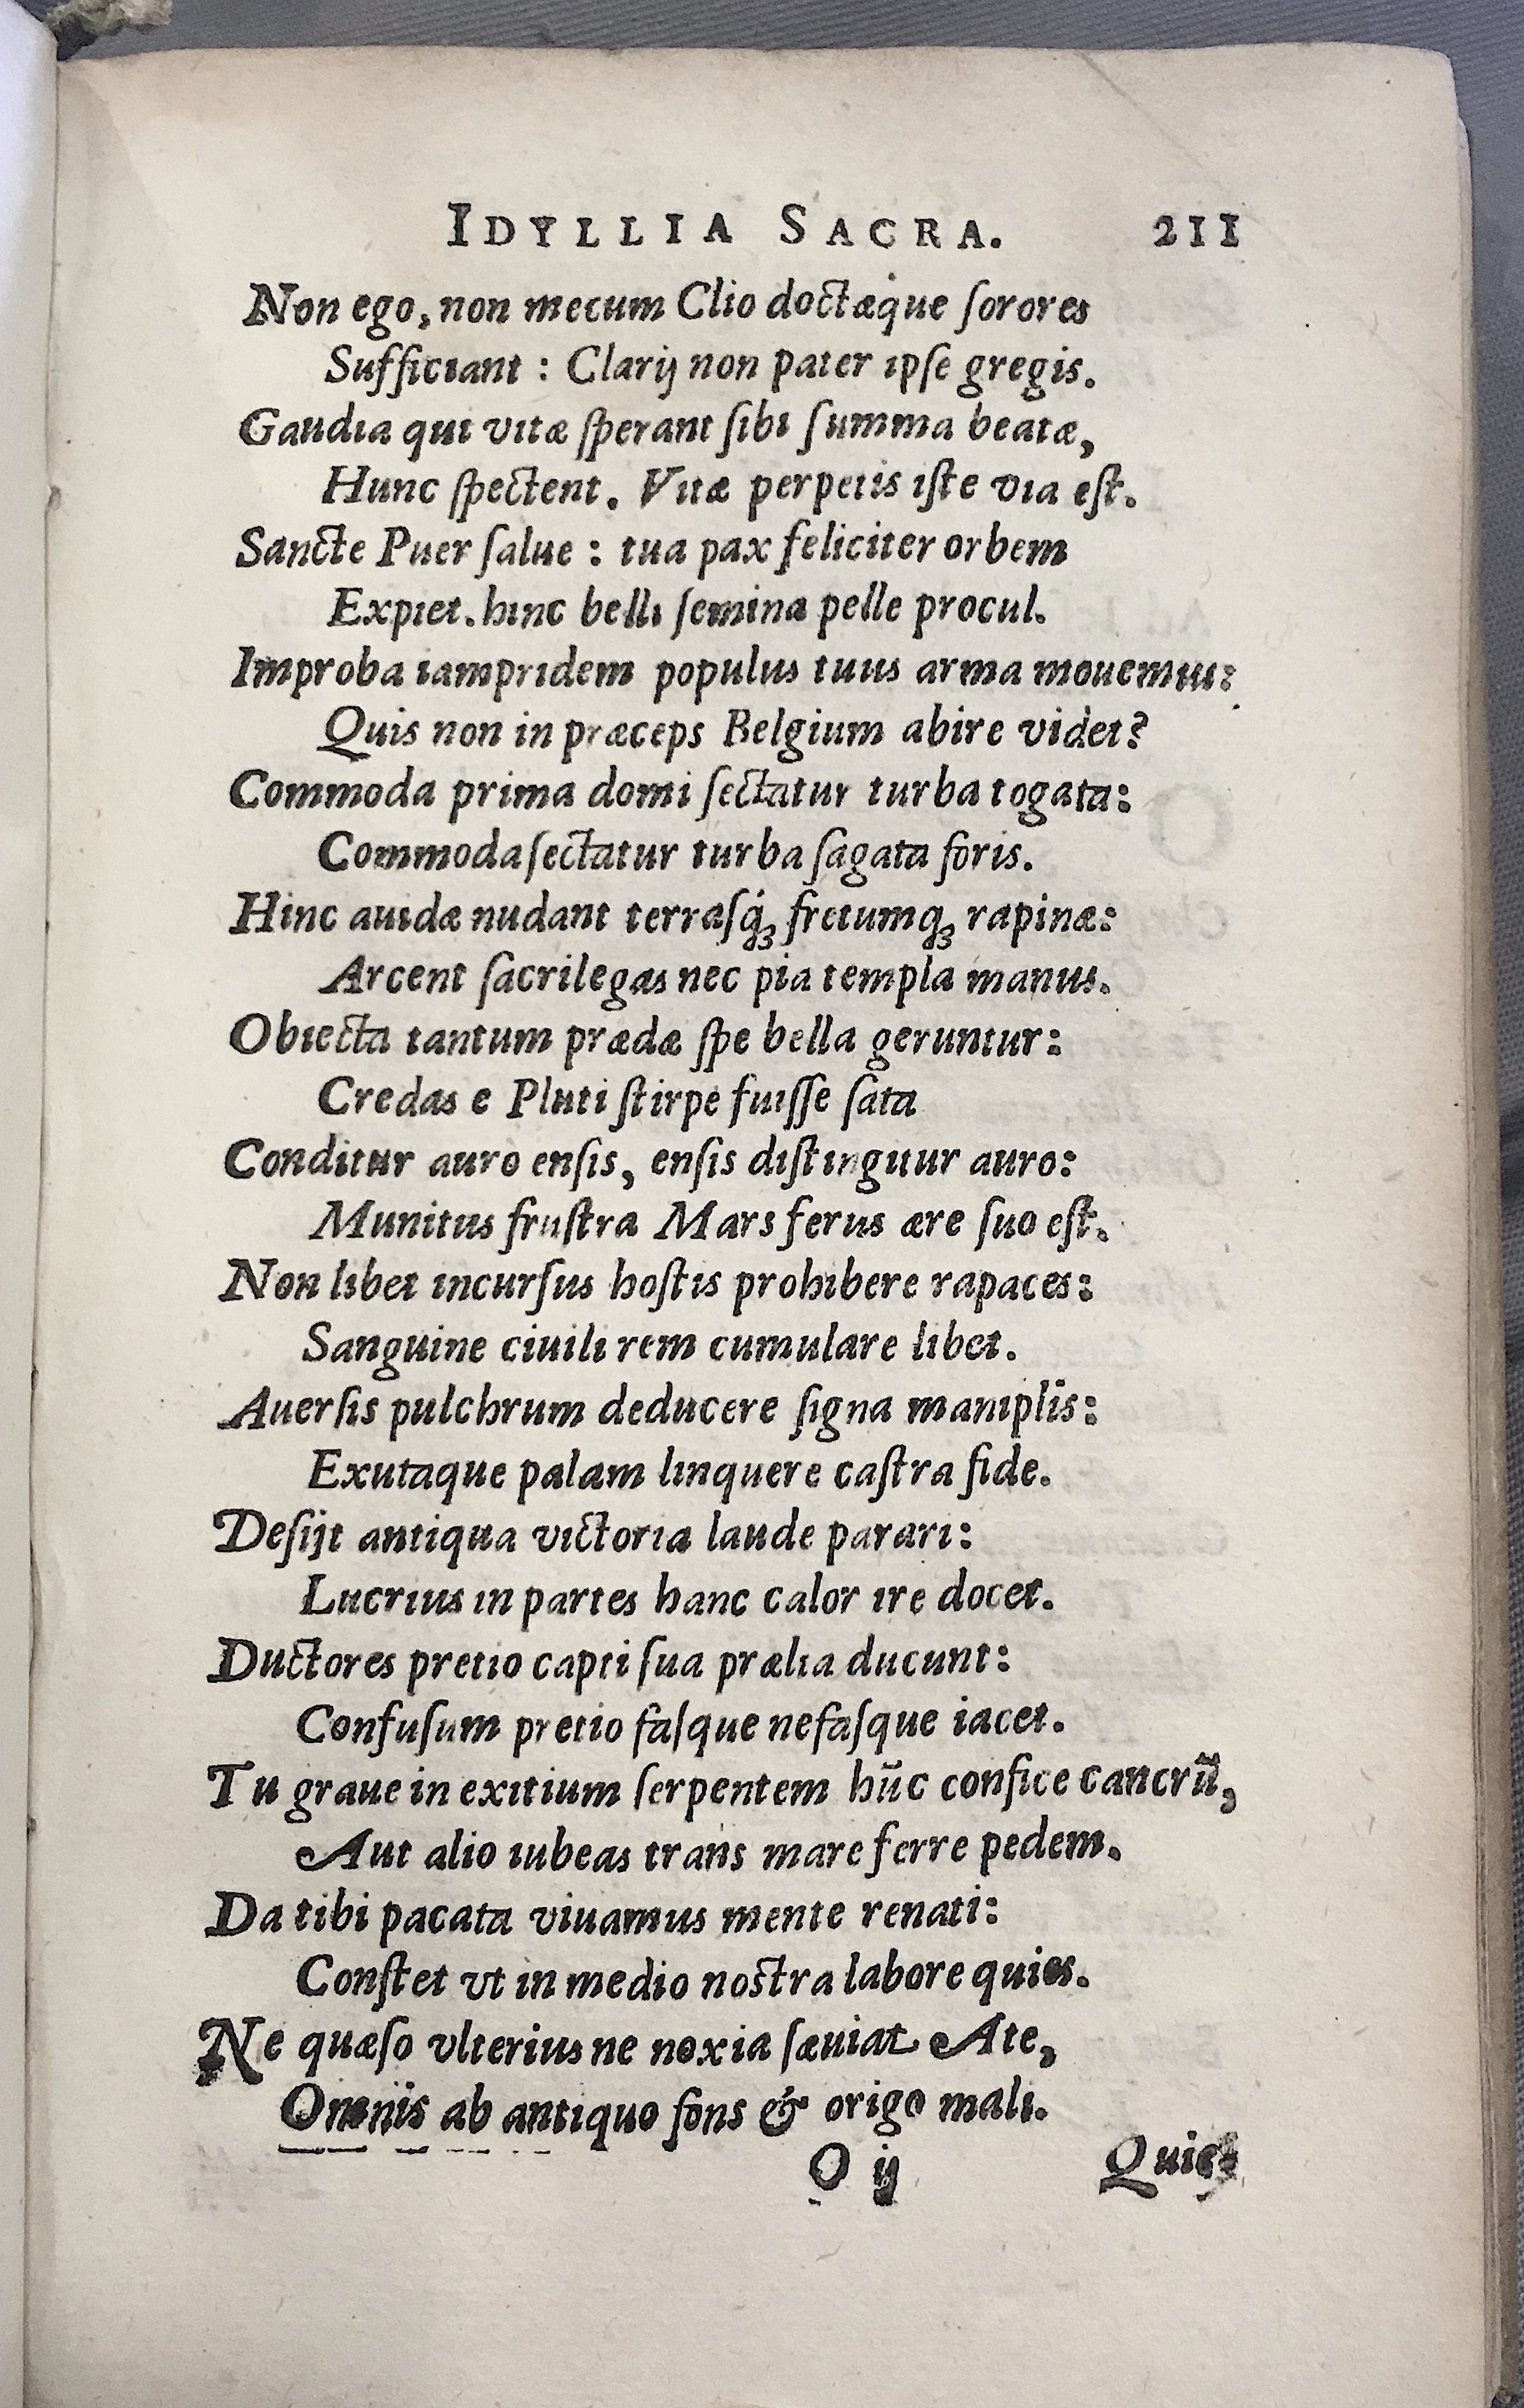 IDYLLIA SACRA. 211
Non ego, non mecum Clio doctæque ſorores
Sufficiant : Clarij non pater ipſe gregis.
Gaudia qui vitæ ſperant ſibi ſumma beatæ,
Hunc ſpectent. Vitæ perpetis iſte via eſt.
Sancte Puer ſalue : tua pax feliciter orbem
Expiet. hinc belli ſemina pelle procul.
Improba iampridem populus tuus arma mouemus:
Quis non in præceps Belgium abire videt?
Commoda prima domi ſectatur turba togata:
Commoda ſectatur turba ſagata foris.
Hinc auidæ nudant terraſq́ꝫ fretumqꝫ rapinæ:
Arcent ſacrilegas nec pia templa manus.
Obiecta tantum prædæ ſpe bella geruntur:
Credas e Pluti ſtirpe fuiſſe ſata
Conditur auro enſis, enſis diſtinguitur auro:
Munitus fruſtra Mars ferus ære ſuo eſt.
Non libet incurſus hoſtis prohibere rapaces:
Sanguine ciuili rem cumulare libet.
Auerſis pulchrum deducere ſigna maniplis:
Exutaque palam linquere caſtra fide.
Deſijt antiqua victoria laude parari:
Lucrius in partes hanc calor ire docet.
Ductores pretio capti ſua prælia ducunt:
Confuſum pretio faſque nefaſque iacet.
Tu graue in exitium ſerpentem hūc confice cancrū,
Aut alio iubeas trans mare ferre pedem.
Da tibi pacata viuamus mente renati:
Conſtet vt in medio noſtra labore quies.
Ne quæſo vlterius ne noxia ſæuiat Ate,
Omnis ab antiquo fons & origo mali.
O ij Quies